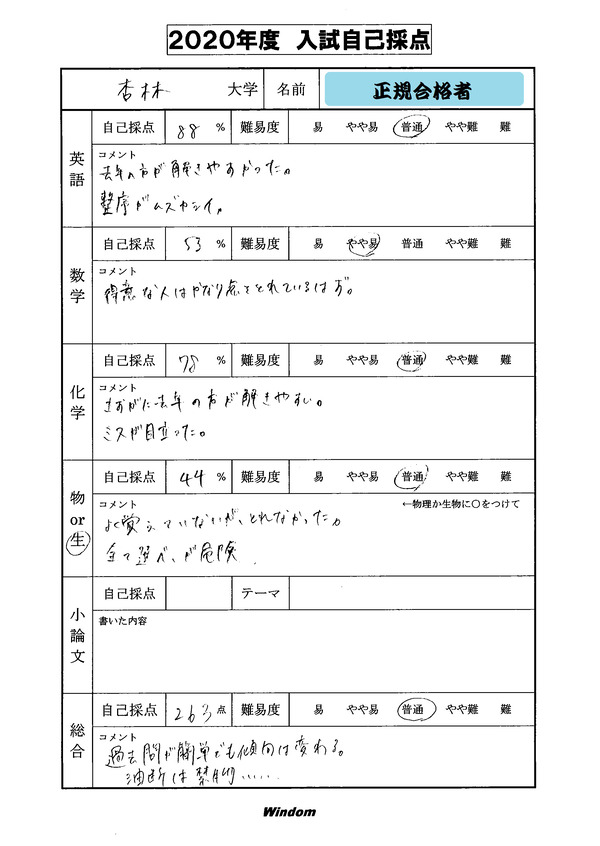 2020年度 入試自己採点
杏林 大学 名前 正規合格者
英語
自己採点 88 % 難易度 易 やや易 普通 やや難 難
コメント
去年の方が解きやすかった。
整序がムズカシイ。
数学
自己採点 53 % 難易度 易 やや易 普通 やや難 難
コメント
得意な人はかなり点をとれているはず。
化学
自己採点 78 % 難易度 易 やや易 普通 やや難 難
コメント
去年の方が解きやすい。
ミスが目立った。
物or生
自己採点 44 % 難易度 易 やや易 普通 やや難 難
コメント ←物理か生物に〇をつけて
よく覚えていないが、とれなかった。
全て選べ、が危険
小論文
自己採点 テーマ
書いた内容
総合
自己採点 263 点 難易度 易 やや易 普通 やや難 難
コメント
過去問が簡単でも傾向は変わる。
油断は禁物……
Windom